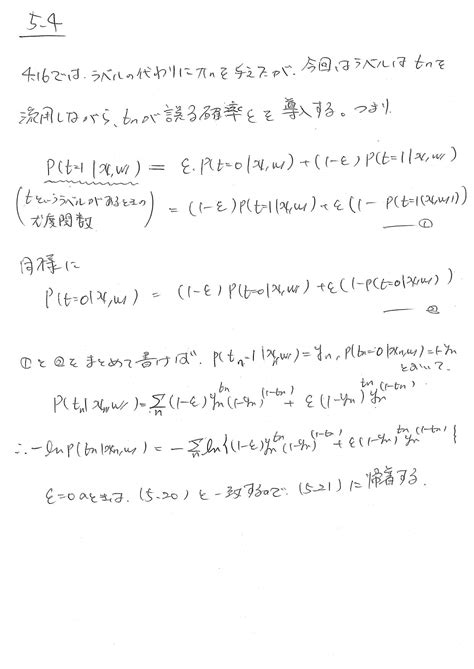 5-4
4.16では、ラベルの代わりにπnを与えたが、今回はラベルはtnを
流用しながら、tnが誤る確率εを導入する。つまり
P(t=1|x,w) = ε・P(t=0|x,w) + (1-ε) P(t=1|x,w)
(tというラベルがあるときの尤度関数) = (1-ε)P(t=1|x,w) + ε(1 - P(t=1|x,w)) —①
同様に
P(t=0|x,w) = (1-ε) P(t=0|x,w) + ε(1-P(t=0|x,w)) —②
①と②をまとめて書けば、P(tn=1|xn,w)=yn, P(tn=0|xn,w)=1-yn
とおいて、
P(tn|xn,w) = Σn (1-ε) yn^tn (1-yn)^(1-tn) + ε(1-yn)^tn yn^(1-tn)
∴ -ln P(tn|xn,w) = -Σn ln{(1-ε) yn^tn (1-yn)^(1-tn) + ε(1-yn)^tn yn^(1-tn)}
ε=0のときは、(5.20) と一致するので、(5.21) に帰着する.